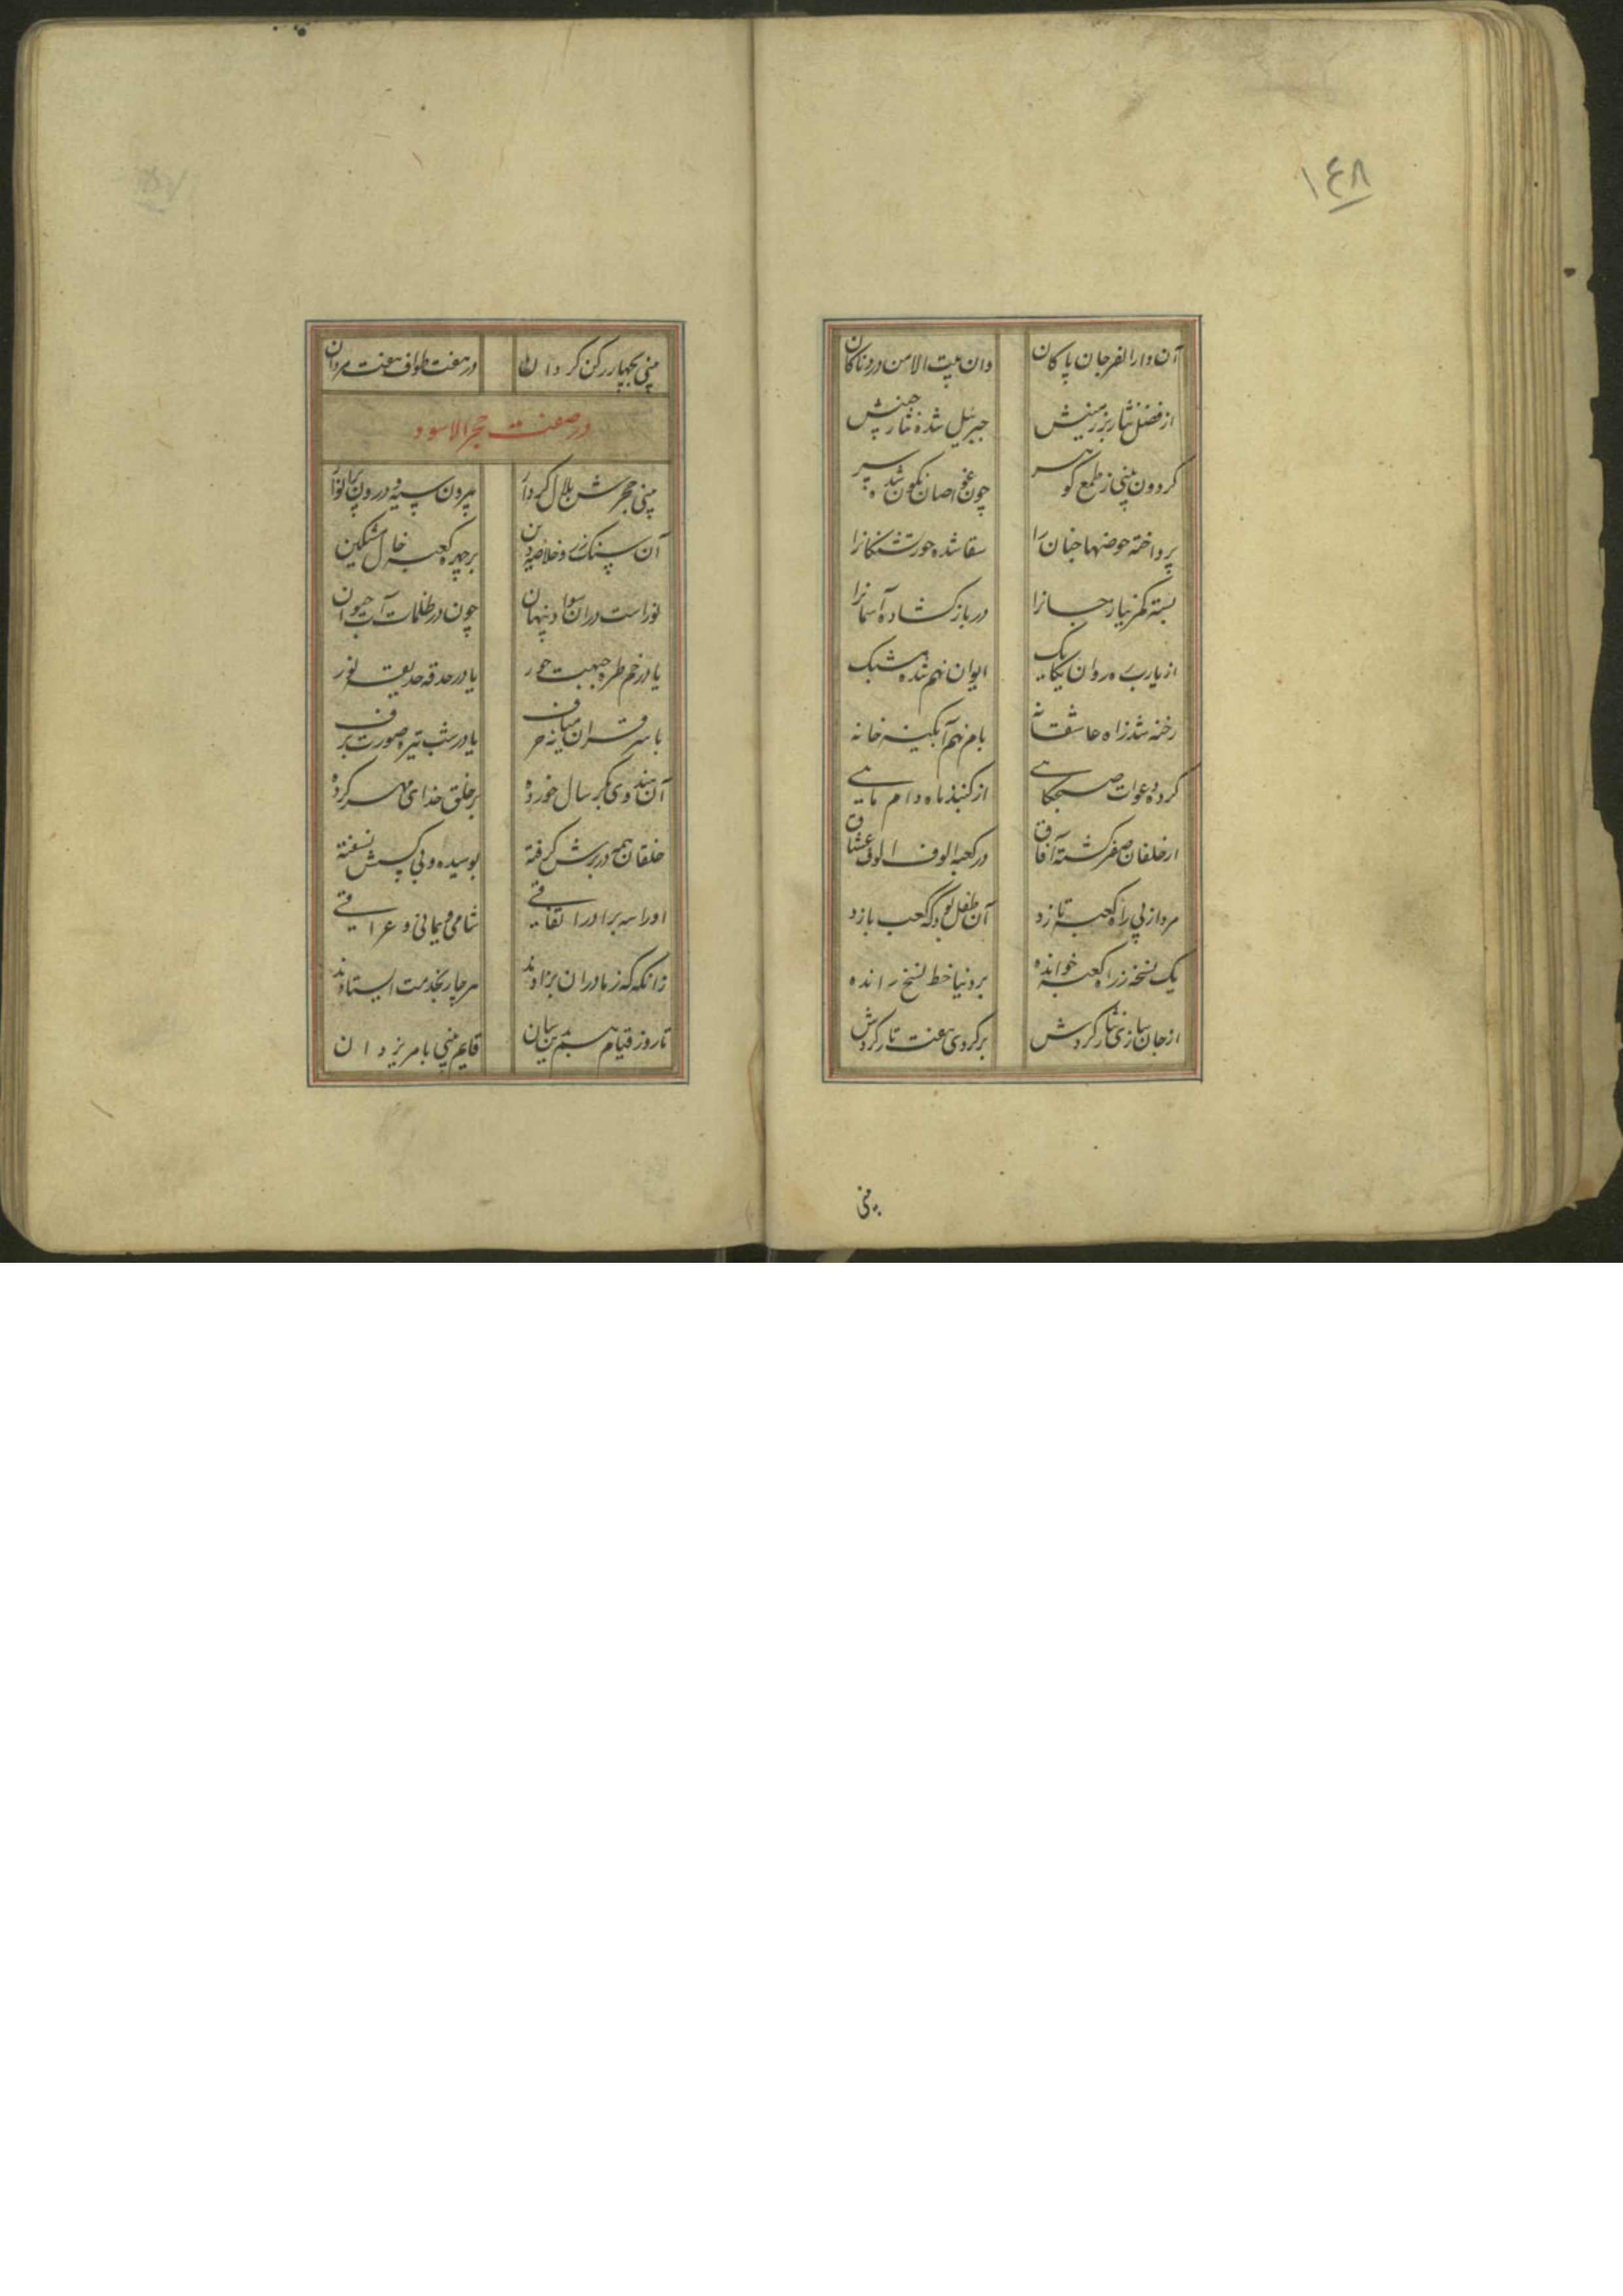 ١٤٨
آن دار الفرجان پاکان وان بیت الامن دردناکان
از فضل نثار بر زمینش جبریل شده نثار چینش
گردون بینی ز طمع کوثر چون غواصان نگون شده سر
پرداخته حوضها جنان را سقا شده حور تشنگانرا
بسته کمر نیاز جانرا در باز گشاده آسمانرا
از یارب رهروان یکایک ایوان نهم شده مشبک
رخنه شد ز آه عاشقانه بام نهم آبگینه خانه
کرده دعوات صبحگاهی از گنبد ماه دام ماهی
از خلقان صفر گشته آفاق در کعبه الوف الوف عشاق
مرد از پی راه کعبه تازد آن طفل بود که کعب بازد
یک نسخه ز راه کعبه خوانده بر دنیا خط نسخ رانده
از جان سازی نثار گردش برگردی هفت بار گردش
بینی
بینی بچهار رکن گردان در هفت طواف هفت مردان
در صفت حجر الاسود
بینی حجرش بلال کردار بیرون سیه و درون پر انوار
آن سنگ زر و خلاصه دین بر چهره کعبه خال مشکین
نور است در آن سواد پنهان چون در ظلمات آب حیوان
یا در خم طره جبهت حور یا در حدقه حدیقه نور
یا سر قران میانه حرف یا در شب تیره صورت برف
آن هندوی بکر سال خورده بر خلق خدای مهر کرده
خلقان همه در برش گرفته بوسیده و بی کسش نسفته
او را سه برادر اتفاقی شامی و یمانی و عراقی
زانگه که ز مادران بزادند هر چار بخدمت ایستادند
تا روز قیام هم بدین سان قایم بینی بامر یزدان